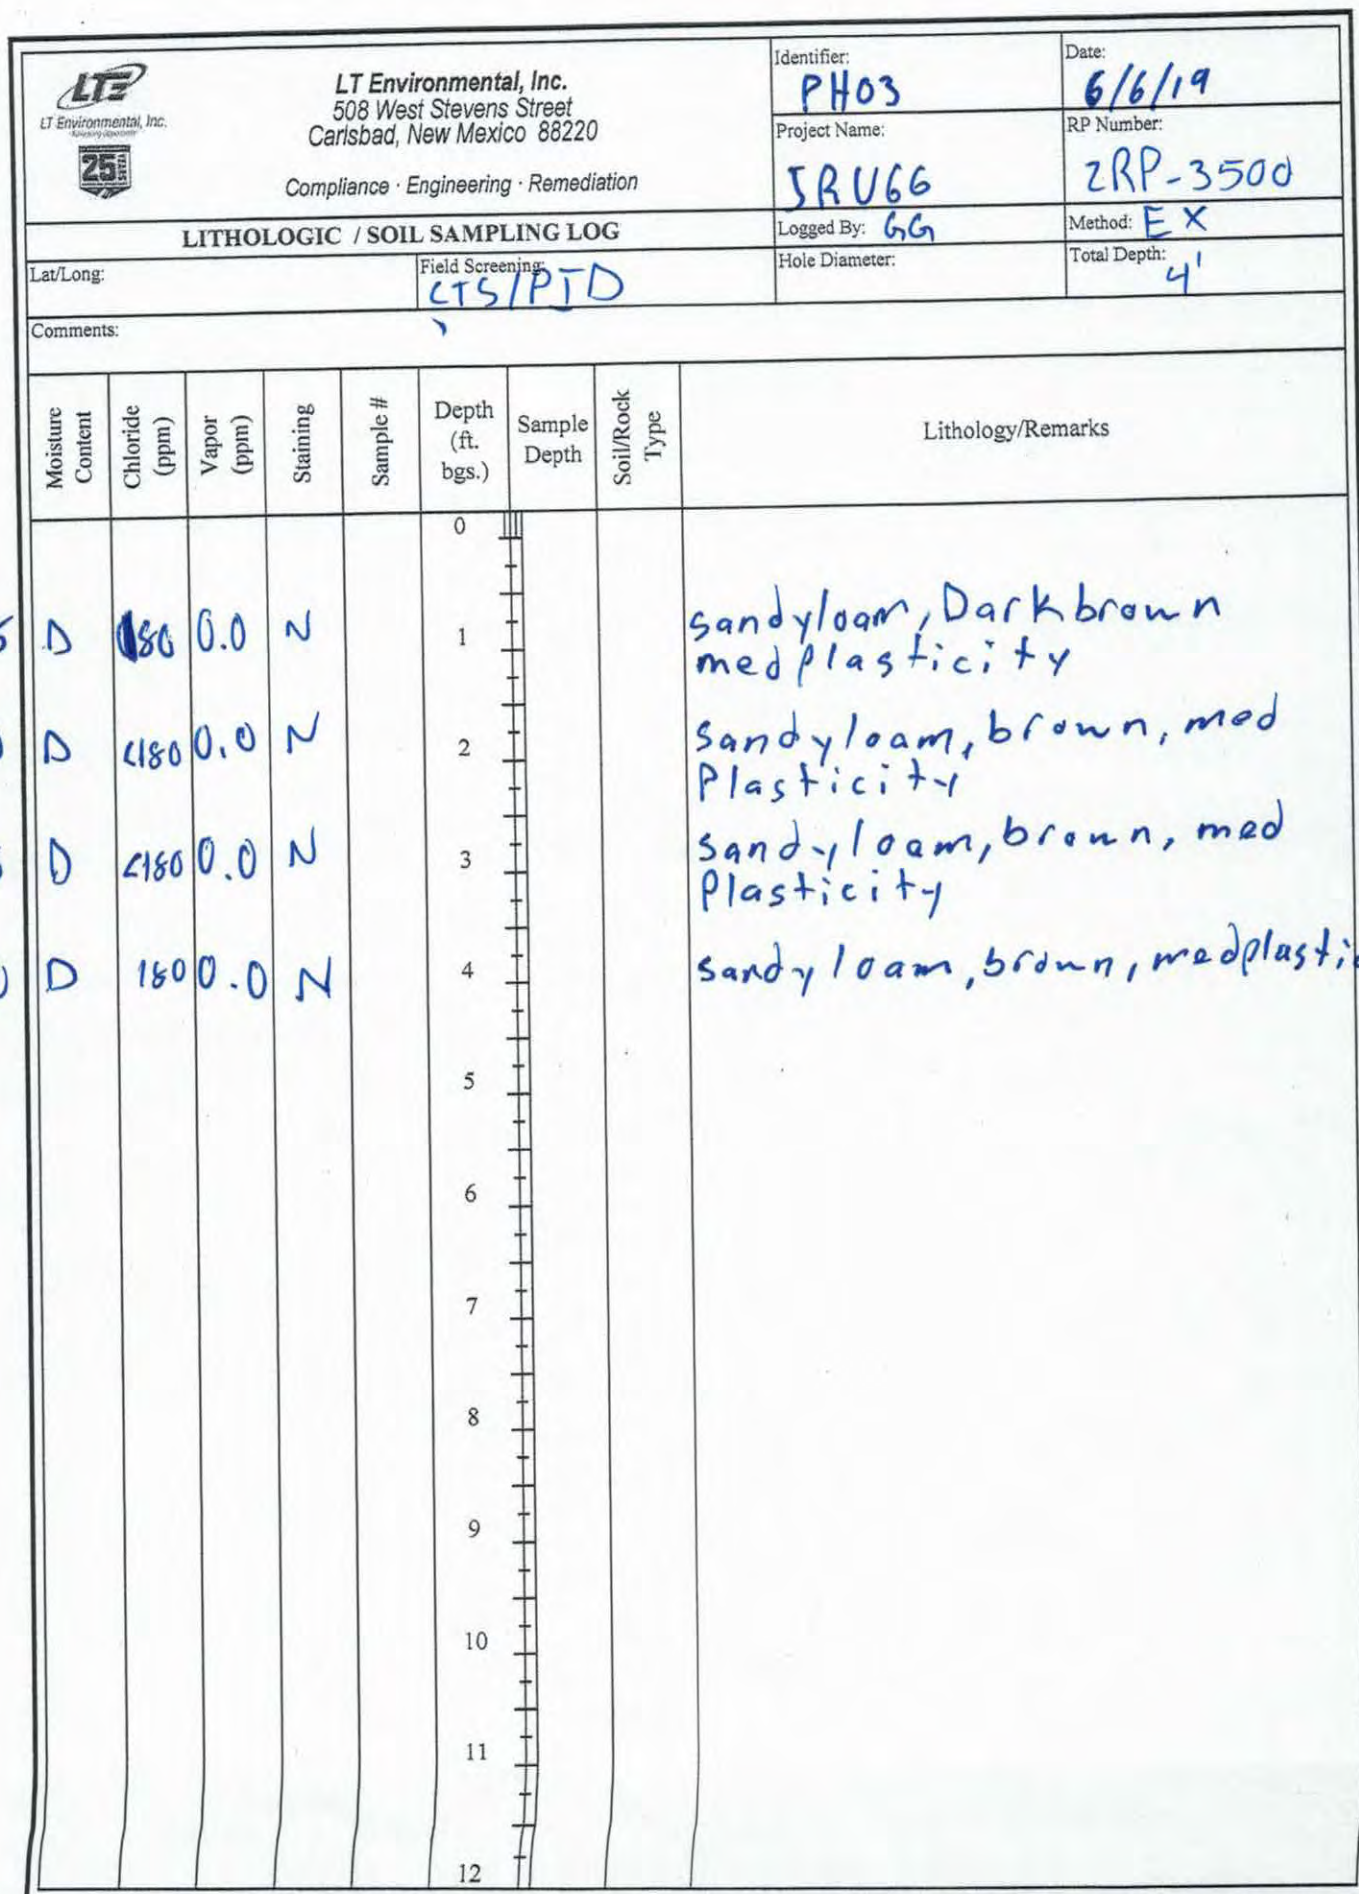 LTE
LT Environmental, Inc.
25
YEARS
LT Environmental, Inc.
508 West Stevens Street
Carlsbad, New Mexico 88220
Compliance · Engineering · Remediation
Identifier:
PH03
Date:
6/6/19
Project Name:
JRU66
RP Number:
2RP-3500
LITHOLOGIC / SOIL SAMPLING LOG
Logged By: GG
Method: EX
Lat/Long:
Field Screening:
CTS/PID
Hole Diameter:
Total Depth:
4'
Comments:
Moisture Content
Chloride (ppm)
Vapor (ppm)
Staining
Sample #
Depth (ft. bgs.)
Sample Depth
Soil/Rock Type
Lithology/Remarks
0
D 180 0.0 N 1 sandyloam, Dark brown
med plasticity
D <180 0.0 N 2 sandyloam, brown, med
Plasticity
D <180 0.0 N 3 sandyloam, brown, med
Plasticity
D 180 0.0 N 4 sandyloam, brown, medplastic
5
6
7
8
9
10
11
12